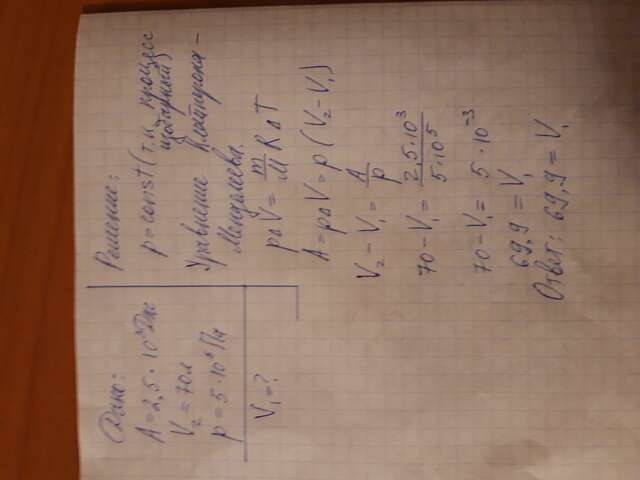 Дано:
A = 2,5 · 10³ Дж
V₂ = 70 л
p = 5 · 10⁵ Па
V₁ = ?
Решение:
p = const (т.к. процесс
изобарный)
Уравнение Клапейрона –
Менделеева.
pΔV = m/M RΔT
A = pΔV = p (V₂ – V₁)
V₂ – V₁ = A/p
70 – V₁ = 2,5·10³/5·10⁵
70 – V₁ = 5 · 10⁻³
69,9 = V₁
Ответ: 69,9 = V₁